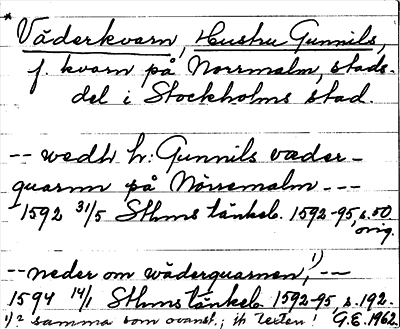 * Väderkvarn, Hustru Gunnils,
f. kvarn på Norrmalm, stads-
del i Stockholms stad.
-- wedh h: Gunnils væder-
quarnn på Nörremalm ---
1592 31/5 Sthms tänkeb. 1592-95, s. 50
orig.
-- neder om wäderquarnen,¹) --
1594 14/1 Sthms tänkeb. 1592-95, s. 192.
1) = samma som ovanst.; ik texten! G.E. 1962.